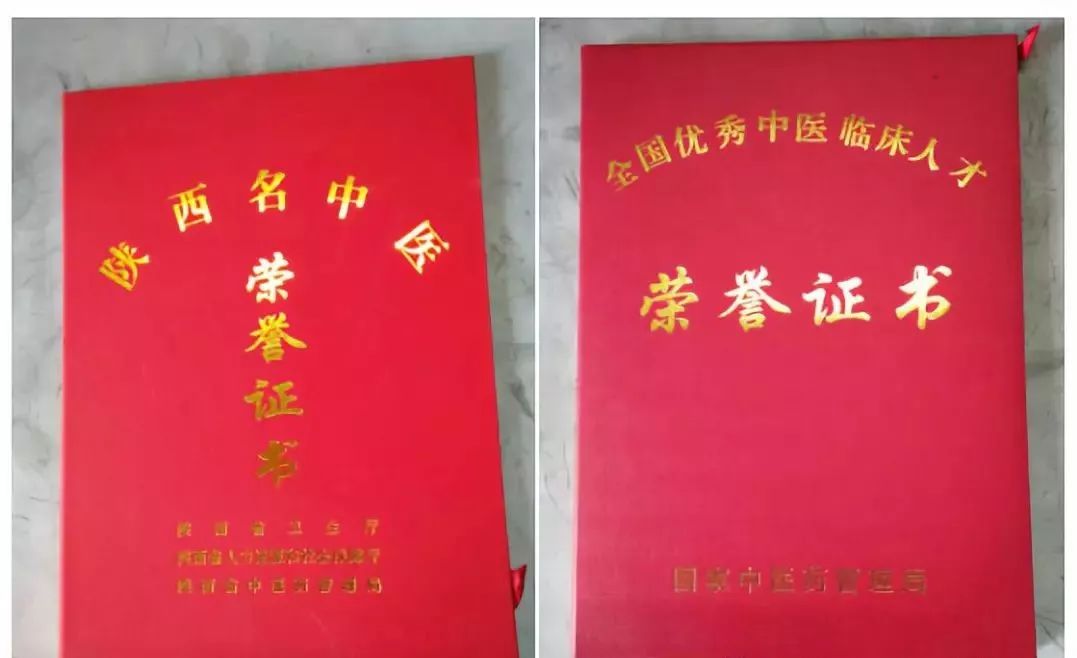 陕西名中医
荣誉证书
陕西省卫生厅
陕西省人力资源和社会保障厅
陕西省中医药管理局
全国优秀中医临床人才
荣誉证书
国家中医药管理局